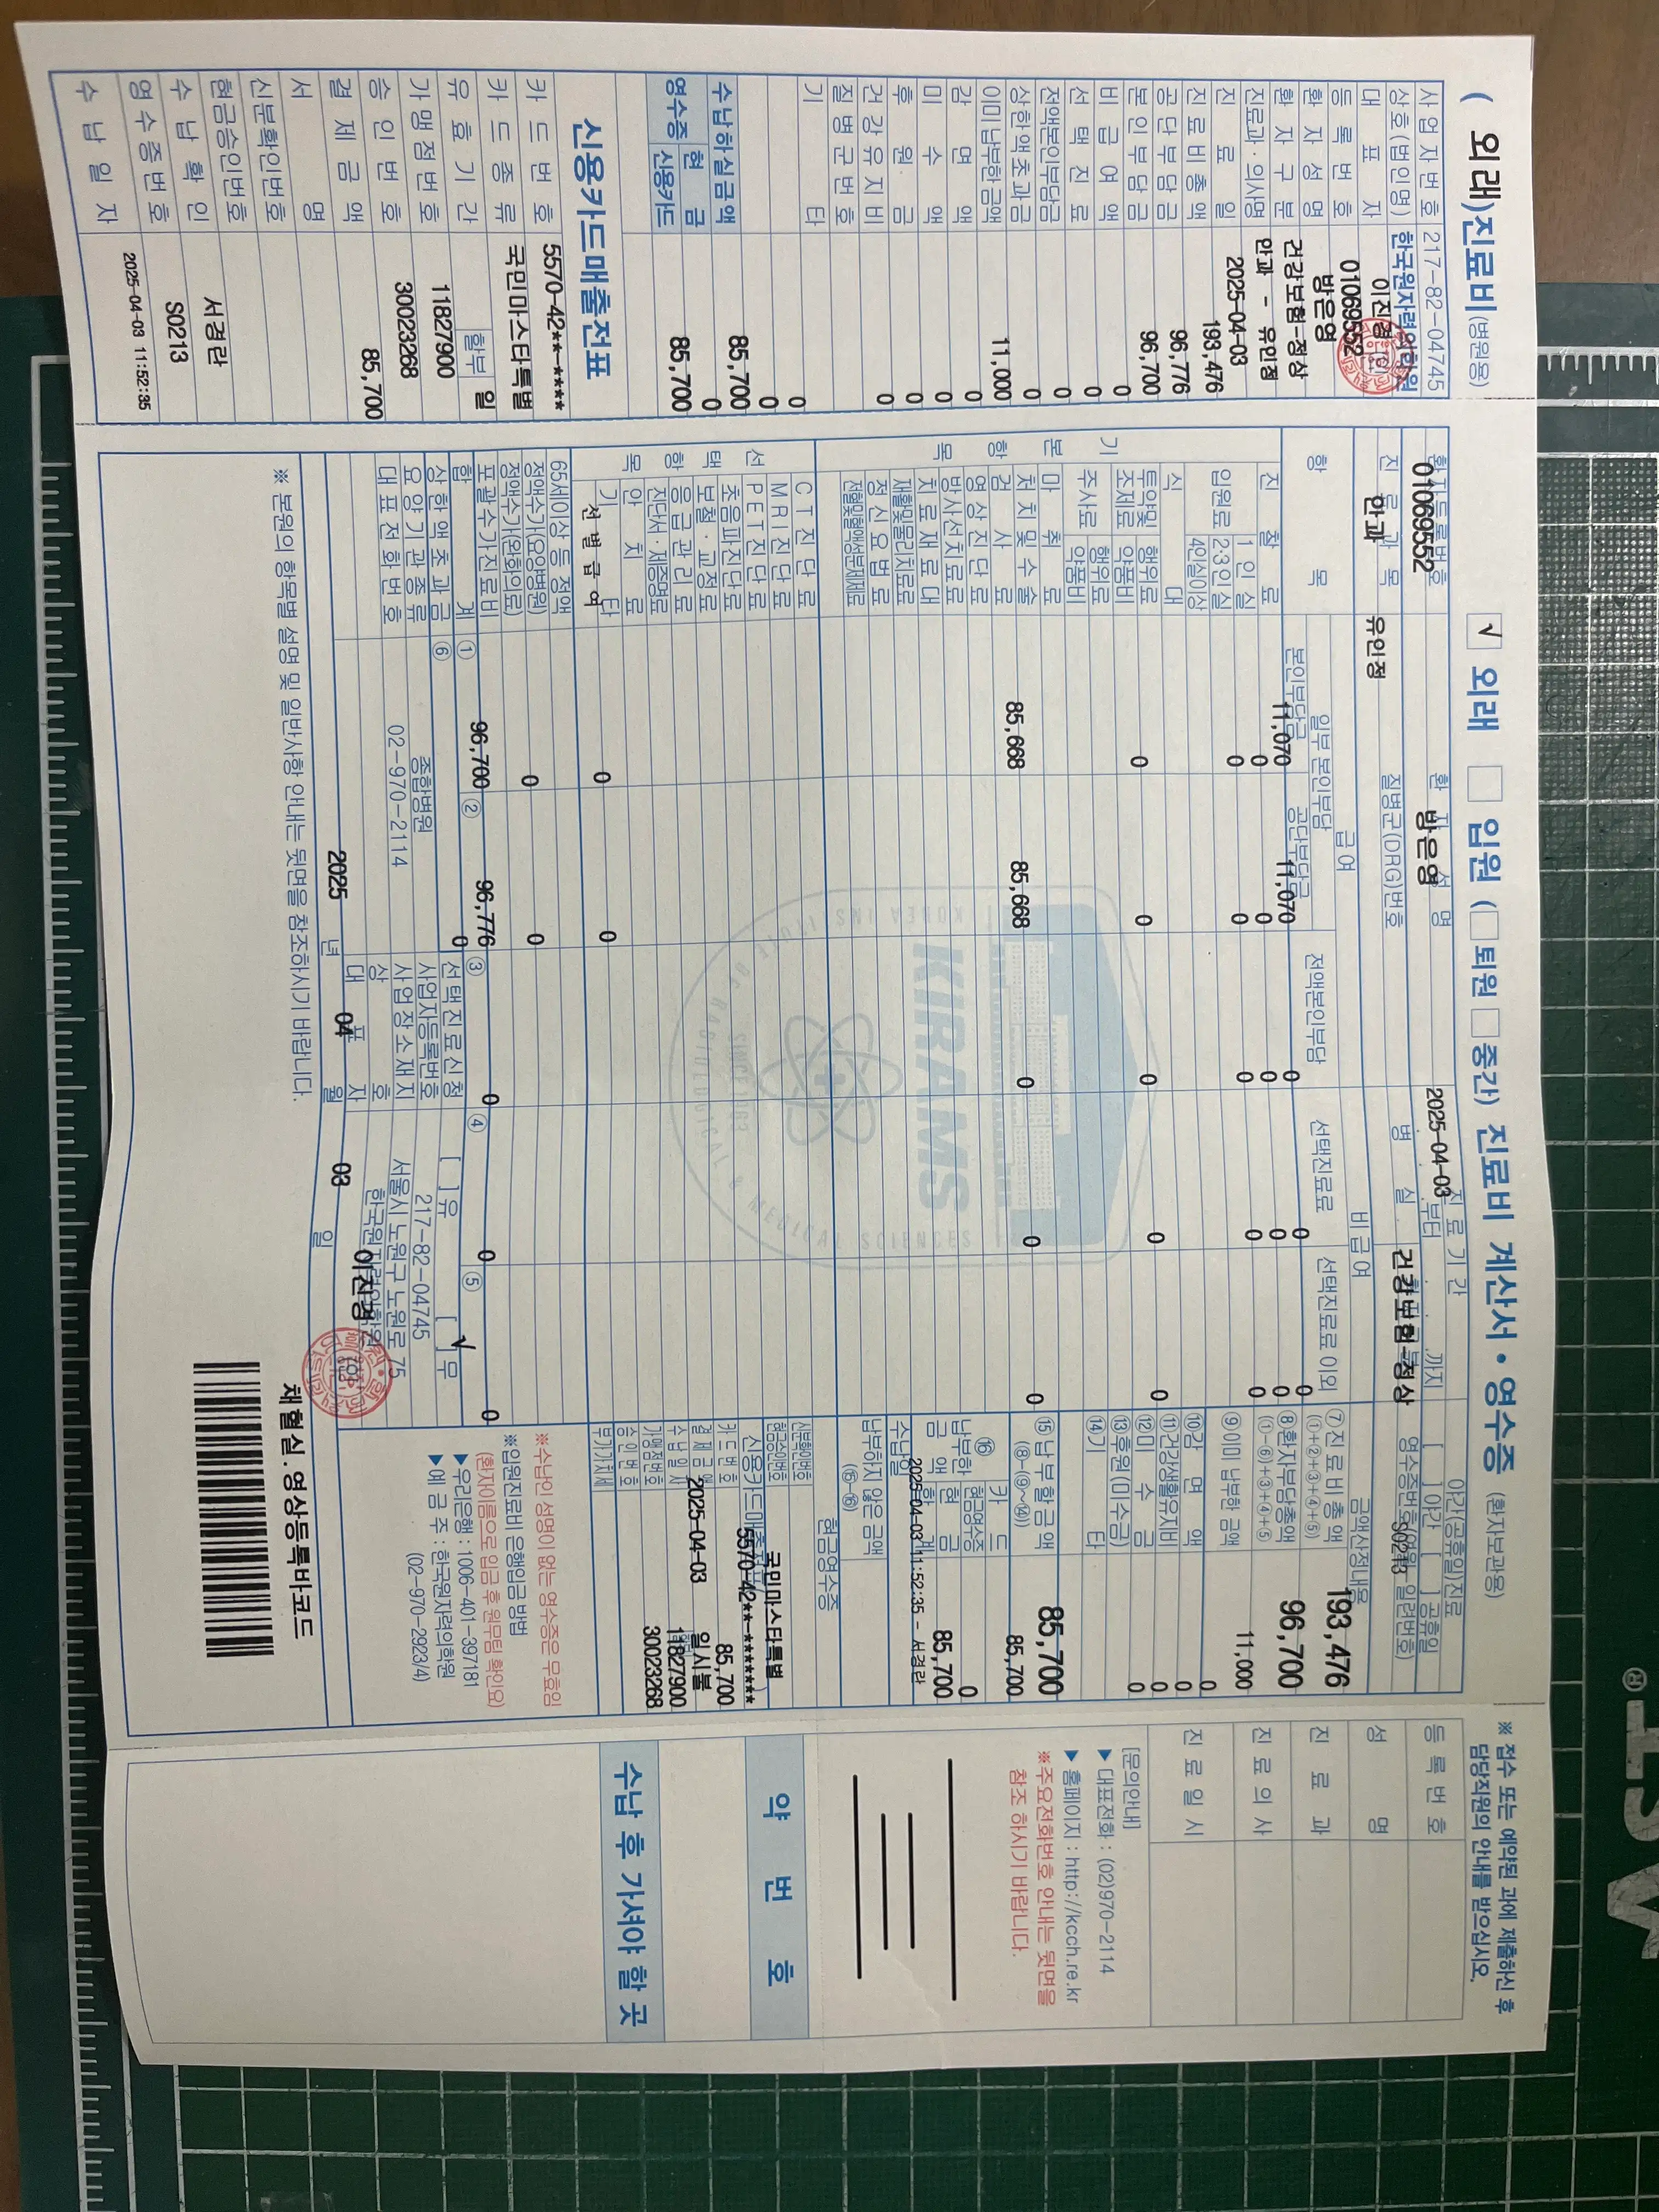 ( 외래)진료비(병원용)
사업자번호 217-82-04745
상호(법인명) 한국원자력의학원
대표자 이진경
등록번호 01069552
환자성명 방은영
환자구분 건강보험-정상
진료과·의사명 안과 - 유인정
진료일 2025-04-03
진료비총액 193,476
공단부담금 96,776
본인부담금 96,700
비급여액 0
선택진료 0
전액본인부담금 0
상한액초과금 0
이미납부한금액 11,000
감면액 0
미수액 0
후원금 0
건강유지비 0
질병군번호
기타
0
0
수납하실금액 85,700
영수증 현금 0
신용카드 85,700
신용카드매출전표
카드번호 5570-42**-****
카드종류 국민마스타특별
유효기간 할부 일
가맹점번호 11827900
승인번호 30023268
결제금액 85,700
서명
신분확인번호
현금승인번호
수납확인 서경란
영수증번호 S0213
수납일자 2025-04-03 11:52:35
√ 외래 입원 ( 퇴원 중간) 진료비 계산서·영수증 (환자보관용)
환자등록번호 환자성명 진료기간 야간(공휴일)진료
01069552 방은영 2025-04-03 부터 까지 [ ]야간 [ ]공휴일
진료과목 질병군(DRG)번호 병실 영수증번호(연월-일련번호)
안과 유인정 건강보험-정상 S0213
항목 급여 비급여 금액산정내용
일부 본인부담 전액본인부담 선택진료료 선택진료료 이외
본인부담금 공단부담금
기본항목
진찰료 11,070 11,070 0 0 0
입원료 1인실 0 0 0 0 0
2·3인실 0 0 0 0 0
4인실이상
식대
투약및조제료 행위료 0 0 0 0 0
약품비
주사료 행위료
약품비
마취료
처치및수술료
검사료 85,668 85,668 0 0 0
영상진단료
방사선치료료
치료재료대
재활및물리치료료
정신요법료
전혈및혈액성분제제료
선택항목
CT진단료
MRI진단료
PET진단료
초음파진단료
보철·교정료
응급관리료
진단서·제증명료
안치료
기타
선별급여 0 0
65세이상 등 정액
정액수가(요양병원)
정액수가(완화의료) 0 0
포괄수가진료비
합계 ① 96,700 ② 96,776 ③ 0 ④ 0 ⑤ 0
상한액초과금 ⑥ 0 선택진료신청 [ ]유 [√]무
요양기관종류 종합병원 사업자등록번호 217-82-04745
대표전화번호 02-970-2114 사업장소재지 서울시 노원구 노원로 75
상호 한국원자력의학원
대표자 이진경
2025 년 04 월 03 일
※ 본원의 항목별 설명 및 일반사항 안내는 뒷면을 참조하시기 바랍니다.
채혈실.영상등록바코드
⑦진료비총액 193,476
(①+②+③+④+⑤)
⑧환자부담총액 96,700
(①-⑥)+③+④+⑤
⑨이미 납부한 금액 11,000
⑩감면액 0
⑪건강생활유지비 0
⑫미수금 0
⑬후원(미수금) 0
⑭기타
⑮납부할금액 85,700
(⑧-(⑨~⑭))
⑯납부한금액 카드 85,700
현금영수증
현금 0
합계 85,700
수납일 2025-04-03 11:52:35 - 서경란
납부하지 않은 금액
(⑮-⑯)
현금영수증
신분확인번호
현금승인번호
신용카드매출전표
국민마스타특별
카드번호 5570-42**-*******
결제금액 85,700
수납일시 2025-04-03 일시불
가맹점번호 11827900
승인번호 30023268
부가가치세
※수납인 성명이 없는 영수증은 무효임
※입원진료비 은행입금 방법
(환자이름으로 입금 후 원무팀 확인요)
▶우리은행 : 1006-401-397181
▶예금주 : 한국원자력의학원
(02-970-2923/4)
KIRAMS
KOREA INSTITUTE OF RADIOLOGICAL & MEDICAL SCIENCES
SINCE 1963
※ 접수 또는 예약된 과에 제출하신 후
담당직원의 안내를 받으십시오.
등록번호
성명
진료과
진료의사
진료일시
[문의안내]
▶ 대표전화 : (02)970-2114
▶ 홈페이지 : http://kcch.re.kr
※주요전화번호 안내는 뒷면을
참조 하시기 바랍니다.
약번호
수납 후 가셔야 할 곳